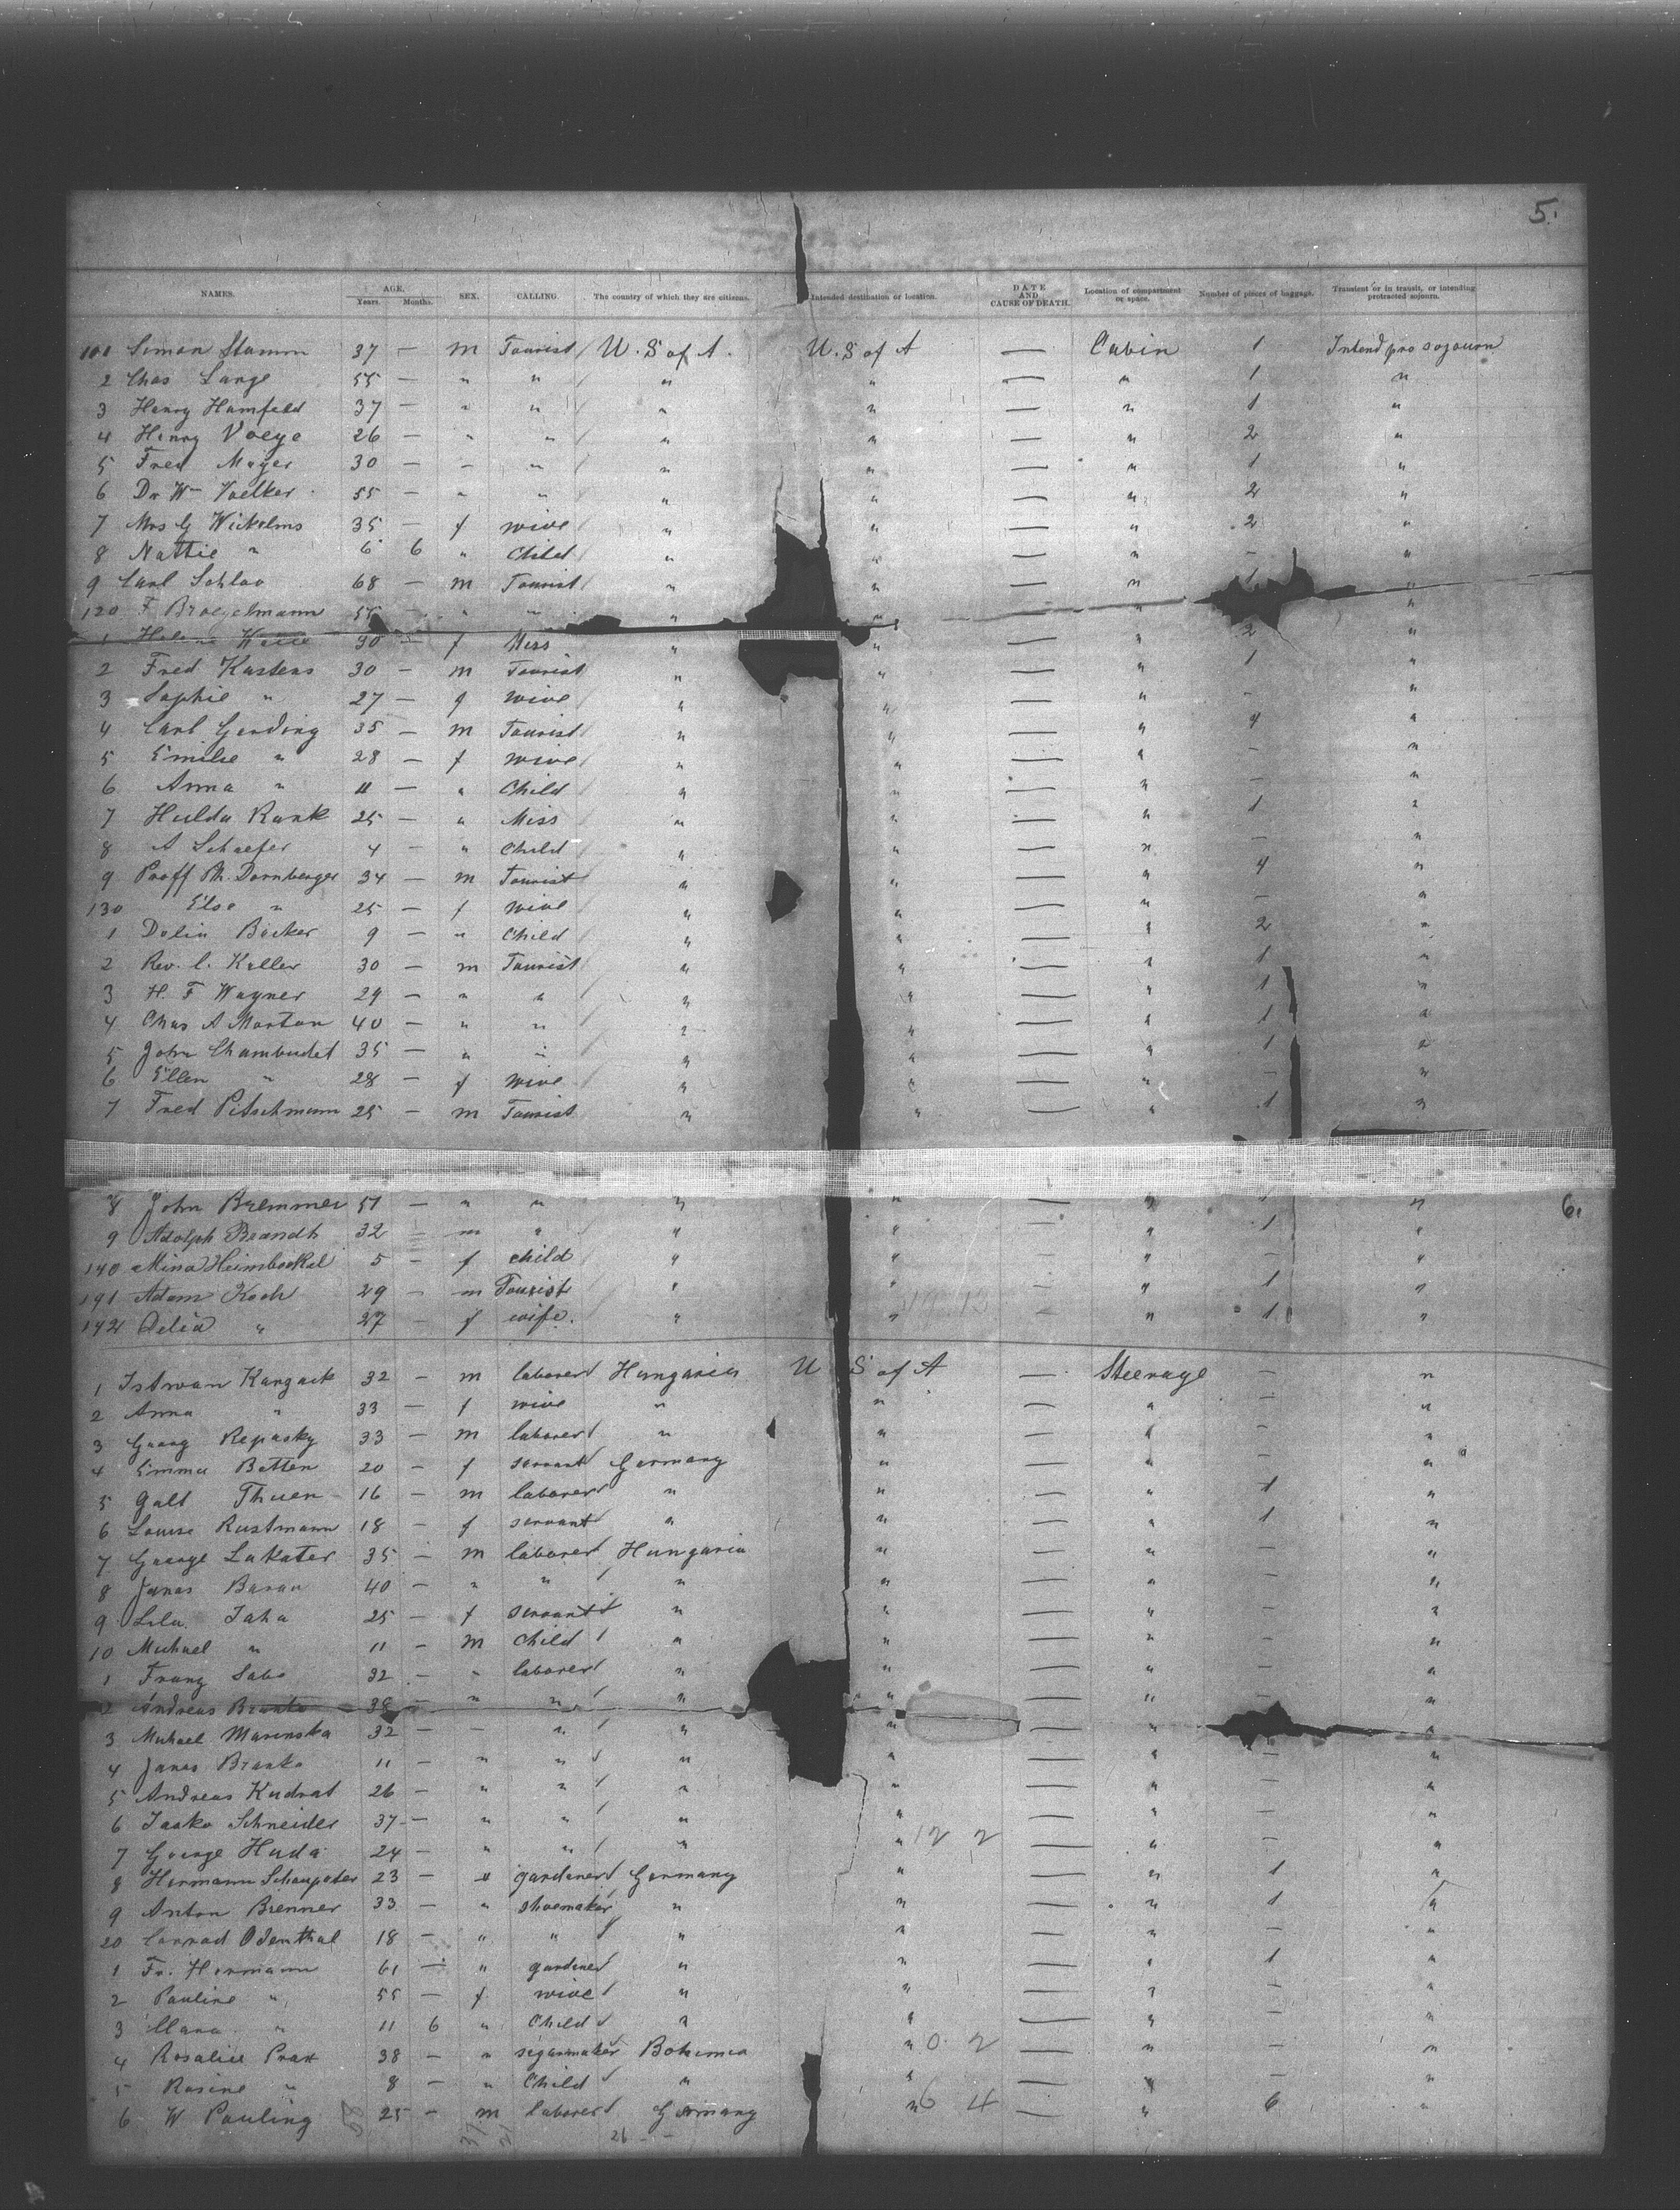 5.
NAMES. AGE. Years. Months. SEX. CALLING. The country of which they are citizens. Intended destination or location. DATE AND CAUSE OF DEATH. Location of compartment or space. Number of pieces of baggage. Transient or in transit, or intending protracted sojourn.
101 Simon Stamm 37 — m Tourist / U. S of A. U. S of A — Cabin 1 Intend pro sojourn
2 Chas Lange 55 — " " / " " — " 1 "
3 Henry Hamfeld 37 — " " / " " — " 1 "
4 Henry Voege 26 — " " / " " — " 2 "
5 Fred Mayer 30 — " " / " " — " 1 "
6 Dr Wm Voelker 55 — " " / " " — " 2 "
7 Mrs G Wickelms 35 — f wive / " " — " 2 "
8 Nattie " 6 6 " Child / " " — " — "
9 Carl Schlao 68 — m Tourist / " " — " 1 "
120 F. Broegelmann — " " " " — " "
1 Helene 30 — f Miss " " — " 2 "
2 Fred Kastens 30 — m Tourist " " — " 1 "
3 Sophie " 27 — f wive / " " — " — "
4 Carl Gerding 35 — m Tourist / " " — " 4 "
5 Emilie " 28 — f wive / " " — " — "
6 Anna " 11 — " Child / " " — " — "
7 Hulda Rank 25 — " Miss / " " — " 1 "
8 A Schaefer 4 — " Child / " " — " — "
9 Proff Ph. Dornberger 34 — m Tourist " " — " 4 "
130 Else " 25 — f wive / " " — " — "
1 Dolin Backer 9 — " Child / " " — " 2 "
2 Rev. C. Keller 30 — m Tourist " " — " 1 "
3 H. F Wagner 29 — " " / " " — " 1 "
4 Chas A Morton 40 — " " / " " — " 1 "
5 John Chambudet 35 — " " / " " — " 1 "
6 Ellen " 28 — f wive / " " — " — "
7 Fred Pitschmann 25 — m Tourist " " — " 1 "
8 John Bremmer 51 — " " " " — " 1 " 6.
9 Adolph Brandt 32 — m " / " " — " 1 "
140 Mina Heimbockel 5 — f child / " " — " — "
141 Adam Koch 29 — m Tourist " " — " 1 "
142 Delia " 27 — f wife. " " — " 1 "
1 Istwan Kargack 32 — m laborer / Hungaria U S of A — Steerage — "
2 Anna " 33 — f wive " " — " — "
3 Georg Repasky 33 — m laborer / " " — " — "
4 Emma Batten 20 — f servant Germany " — " — "
5 Galt Thuen 16 — m laborer / " " — " 1 "
6 Louise Rustmann 18 — f servant / " " — " 1 "
7 George Lakater 35 — m laborer / Hungaria " — " — "
8 Janos Baran 40 — " " / " " — " — "
9 Lila Jaha 25 — f servant / " " — " — "
10 Michael " 11 — m child / " " — " — "
1 Franz Sabo 32 — " laborer / " " — " — "
2 Andreas 38 — " " / " " — " — "
3 Michael Marinska 32 — — " / " " — " "
4 Janos Branko 11 — " " / " " — " — "
5 Andreas Kudrat 26 — " " / " " — " — "
6 Janko Schneider 37 — " " / " " — " — "
7 George Huda 24 — " " / " " 12 2 — " — "
8 Hermann Schaupeter 23 — " gardener / Germany " — " 1 "
9 Anton Brenner 33 — " shoemaker " " — " 1 "
20 Conrad Odenthal 18 — " " / " " — " — "
1 Fr. Hermann 61 — " gardener " " — " 1 "
2 Pauline " 55 — f wive / " " — " — "
3 Clara " 11 6 " Child / " " — " — "
4 Rosalie Prax 38 — " segarmaker Bohemia " 0 2 — " — "
5 Rosine " 8 — " Child / " " — " — "
6 W Pauling 25 — m laborer / Germany " 6 4 — " 6 "
26